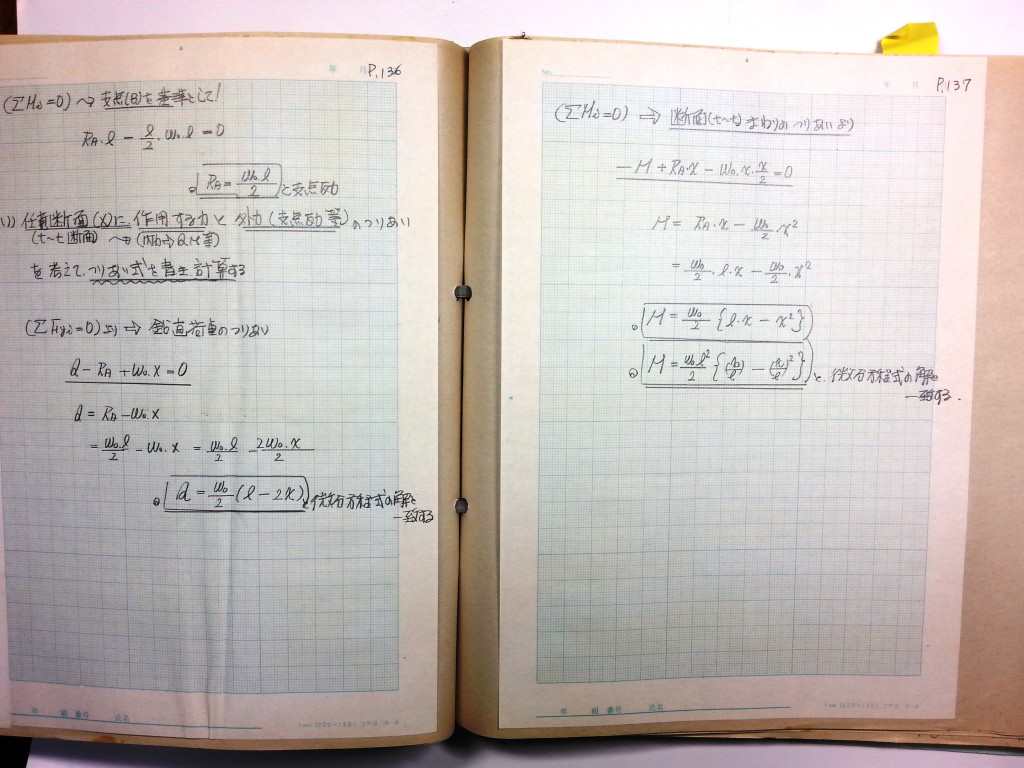 年 月 P.136
(ΣMi=0) ⇝ 支点(B)を基準として!
RA・l − l/2・w0・l = 0
RA = w0・l/2 と支点反力
任意断面(x)に作用する力と外力(支点反力等)のつりあい
(t〜t断面) ⇝ (内力⇒Q,M等)
を考えて、つりあい式を書き計算する
(ΣFyi=0)より ⇒ 鉛直荷重のつりあい
Q − RA + w0・x = 0
Q = RA − w0・x
= w0・l/2 − w0・x = w0・l/2 − 2w0・x/2
Q = w0/2 (l − 2x) と微分方程式の解と
一致する
年 組 番号 氏名
No.
年 月 P.137
(ΣMi=0) ⇒ 断面(t〜t)まわりのつりあいより
−M + RA・x − w0・x・x/2 = 0
M = RA・x − w0/2・x²
= w0/2・l・x − w0/2・x²
M = w0/2 {l・x − x²}
M = w0l²/2 {(x/l) − (x/l)²} と、微分方程式の解と
一致する.
年 組 番号 氏名